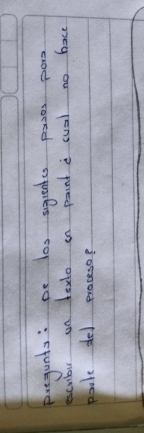 pregunta: De los siguientes pasos para
escribir un texto en paint ¿ cual no hace
parte del proceso?